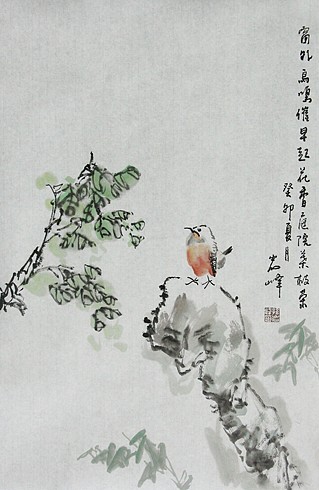 窗外鳥鳴催早起花香庭院葉枝榮
癸卯夏月
岩峰